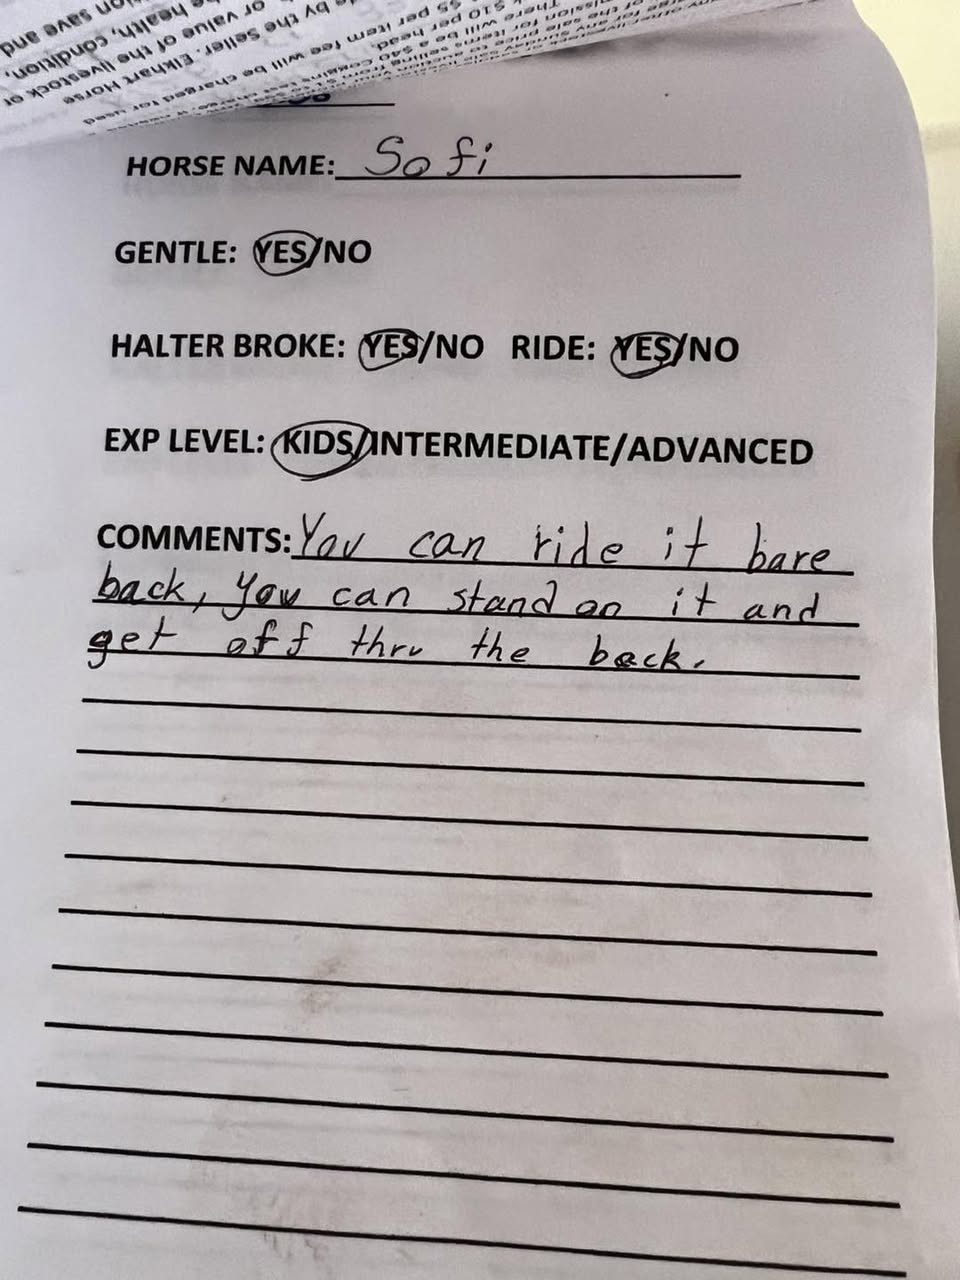 HORSE NAME: Sofi
GENTLE: YES/NO
HALTER BROKE: YES/NO RIDE: YES/NO
EXP LEVEL: KIDS/INTERMEDIATE/ADVANCED
COMMENTS: You can ride it bare
back, you can stand on it and
get off thru the back.